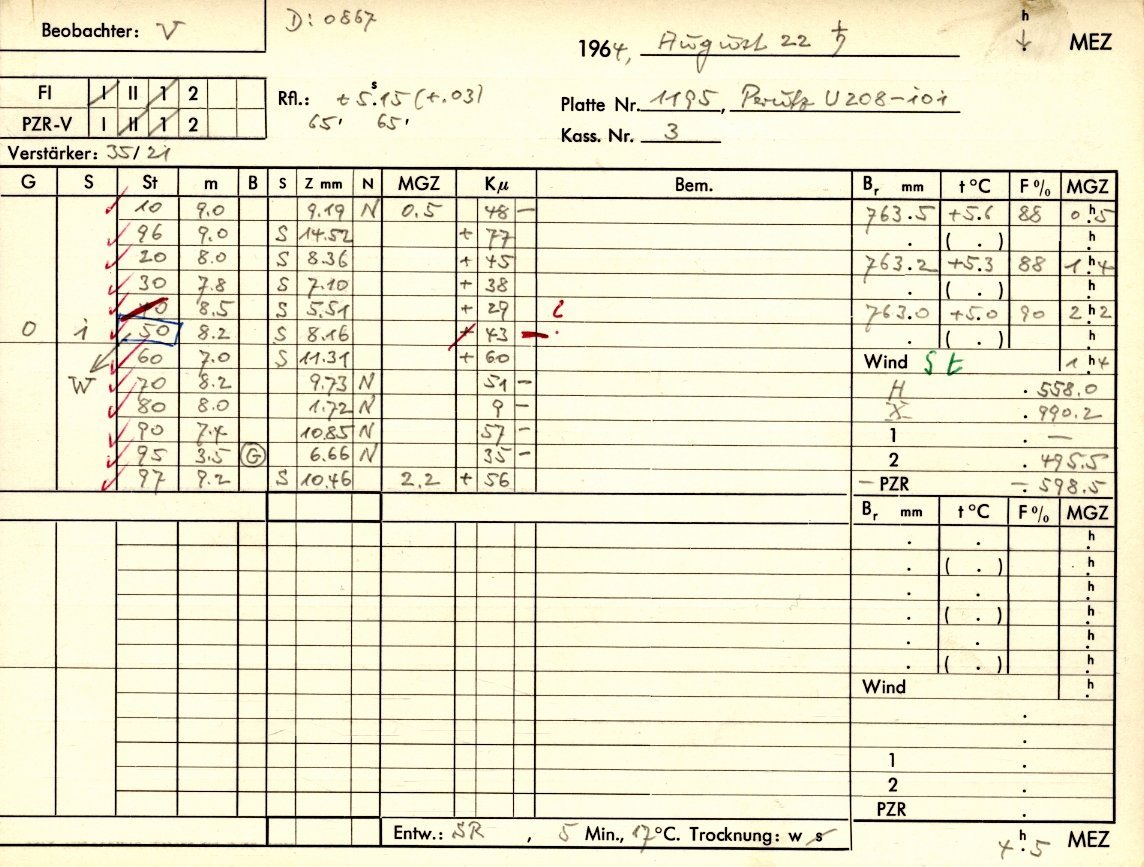 Beobachter: V
D: 0867
1964, August 22 ♄
h ↓ MEZ
FI I II 1 2
PZR-V I II 1 2
Rfl.: +5.ˢ15 (+.03)
65' 65'
Platte Nr. 1195, Perutz U208-i0i
Kass. Nr. 3
Verstärker: 35/21
G S St m B S Z mm N MGZ Kμ Bem. Bᵣ mm t °C F% MGZ
10 9.0 9.19 N 0.5 48 - 763.5 +5.6 88 0ʰ.5
96 9.0 S 14.52 + 77 . ( . ) ʰ.
20 8.0 S 8.36 + 45 763.2 +5.3 88 1ʰ.4
30 7.8 S 7.10 + 38 . ( . ) ʰ.
40 8.5 S 5.51 + 29 763.0 +5.0 90 2ʰ.2
0 i 50 8.2 S 8.16 + 43 - . ( . ) ʰ.
60 7.0 S 11.31 + 60 Wind St 1ʰ.4
W 70 8.2 9.73 N 51 - H . 558.0
80 8.0 1.72 N 9 - X . 990.2
90 7.4 10.85 N 57 - 1 . —
95 3.5 G 6.66 N 35 - 2 . 495.5
97 9.2 S 10.46 2.2 + 56 - PZR - . 598.5
Bᵣ mm t °C F% MGZ
. . ʰ.
. ( . ) ʰ.
. . ʰ.
. ( . ) ʰ.
. . ʰ.
. ( . ) ʰ.
Wind ʰ.
.
.
1 .
2 .
PZR .
Entw.: SR , 5 Min., 17°C. Trocknung: w s
4ʰ.5 MEZ